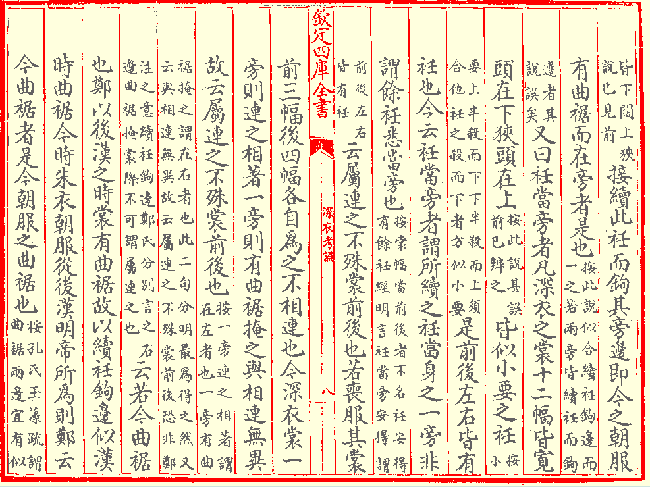 皆下闊上狹
說已見前
接續此衽而鉤其旁邊即今之朝服
有曲裾而在旁者是也
按此說似合續衽鉤邊而
一之若兩旁皆續衽而鉤
邊者其
說誤矣
又曰衽當旁者凡深衣之裳十二幅皆寬
頭在下狹頭在上
按此說甚誤
前已辨之
皆似小要之衽
按
小
要上半殺而下下半殺而上須
合他衽之殺而下者方似小要
是前後左右皆有
衽也今云衽當旁者謂所續之衽當身之一旁非
謂餘衽悉當旁也
按裳幅當前後者不名衽安得
有餘衽經明言衽當旁安得謂
前後左右
皆有衽
云屬連之不殊裳前後也若喪服其裳
欽定四庫全書
深衣考誤
八
前三幅後四幅各自為之不相連也今深衣裳一
旁則連之相著一旁則有曲裾掩之與相連無異
故云屬連之不殊裳前後也
按一旁連之相著謂
在左者也一旁有曲
裾掩之謂在右者也此二句分明最為得之然又
云與相連無異故云屬連之不殊裳前後恐非鄭
注之意續衽鉤邊鄭氏分別言之右
邊曲裾掩裳際不可謂屬連之也
云若今曲裾
也鄭以後漢之時裳有曲裾故以續衽鉤邊似漢
時曲裾今時朱衣朝服從後漢明帝所為則鄭云
今曲裾者是今朝服之曲裾也
按孔氏玉藻疏謂
曲裾兩邊宜有似